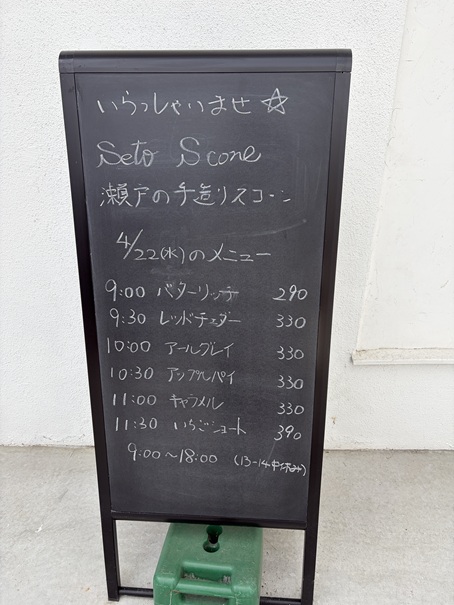 いらっしゃいませ☆
Seto Scone
瀬戸の手造りスコーン
4/22(水)のメニュー
9:00 バターリッチ 290
9:30 レッドチェダー 330
10:00 アールグレイ 330
10:30 アップルパイ 330
11:00 キャラメル 330
11:30 いちごショート 390
9:00〜18:00 (13-14中休み)